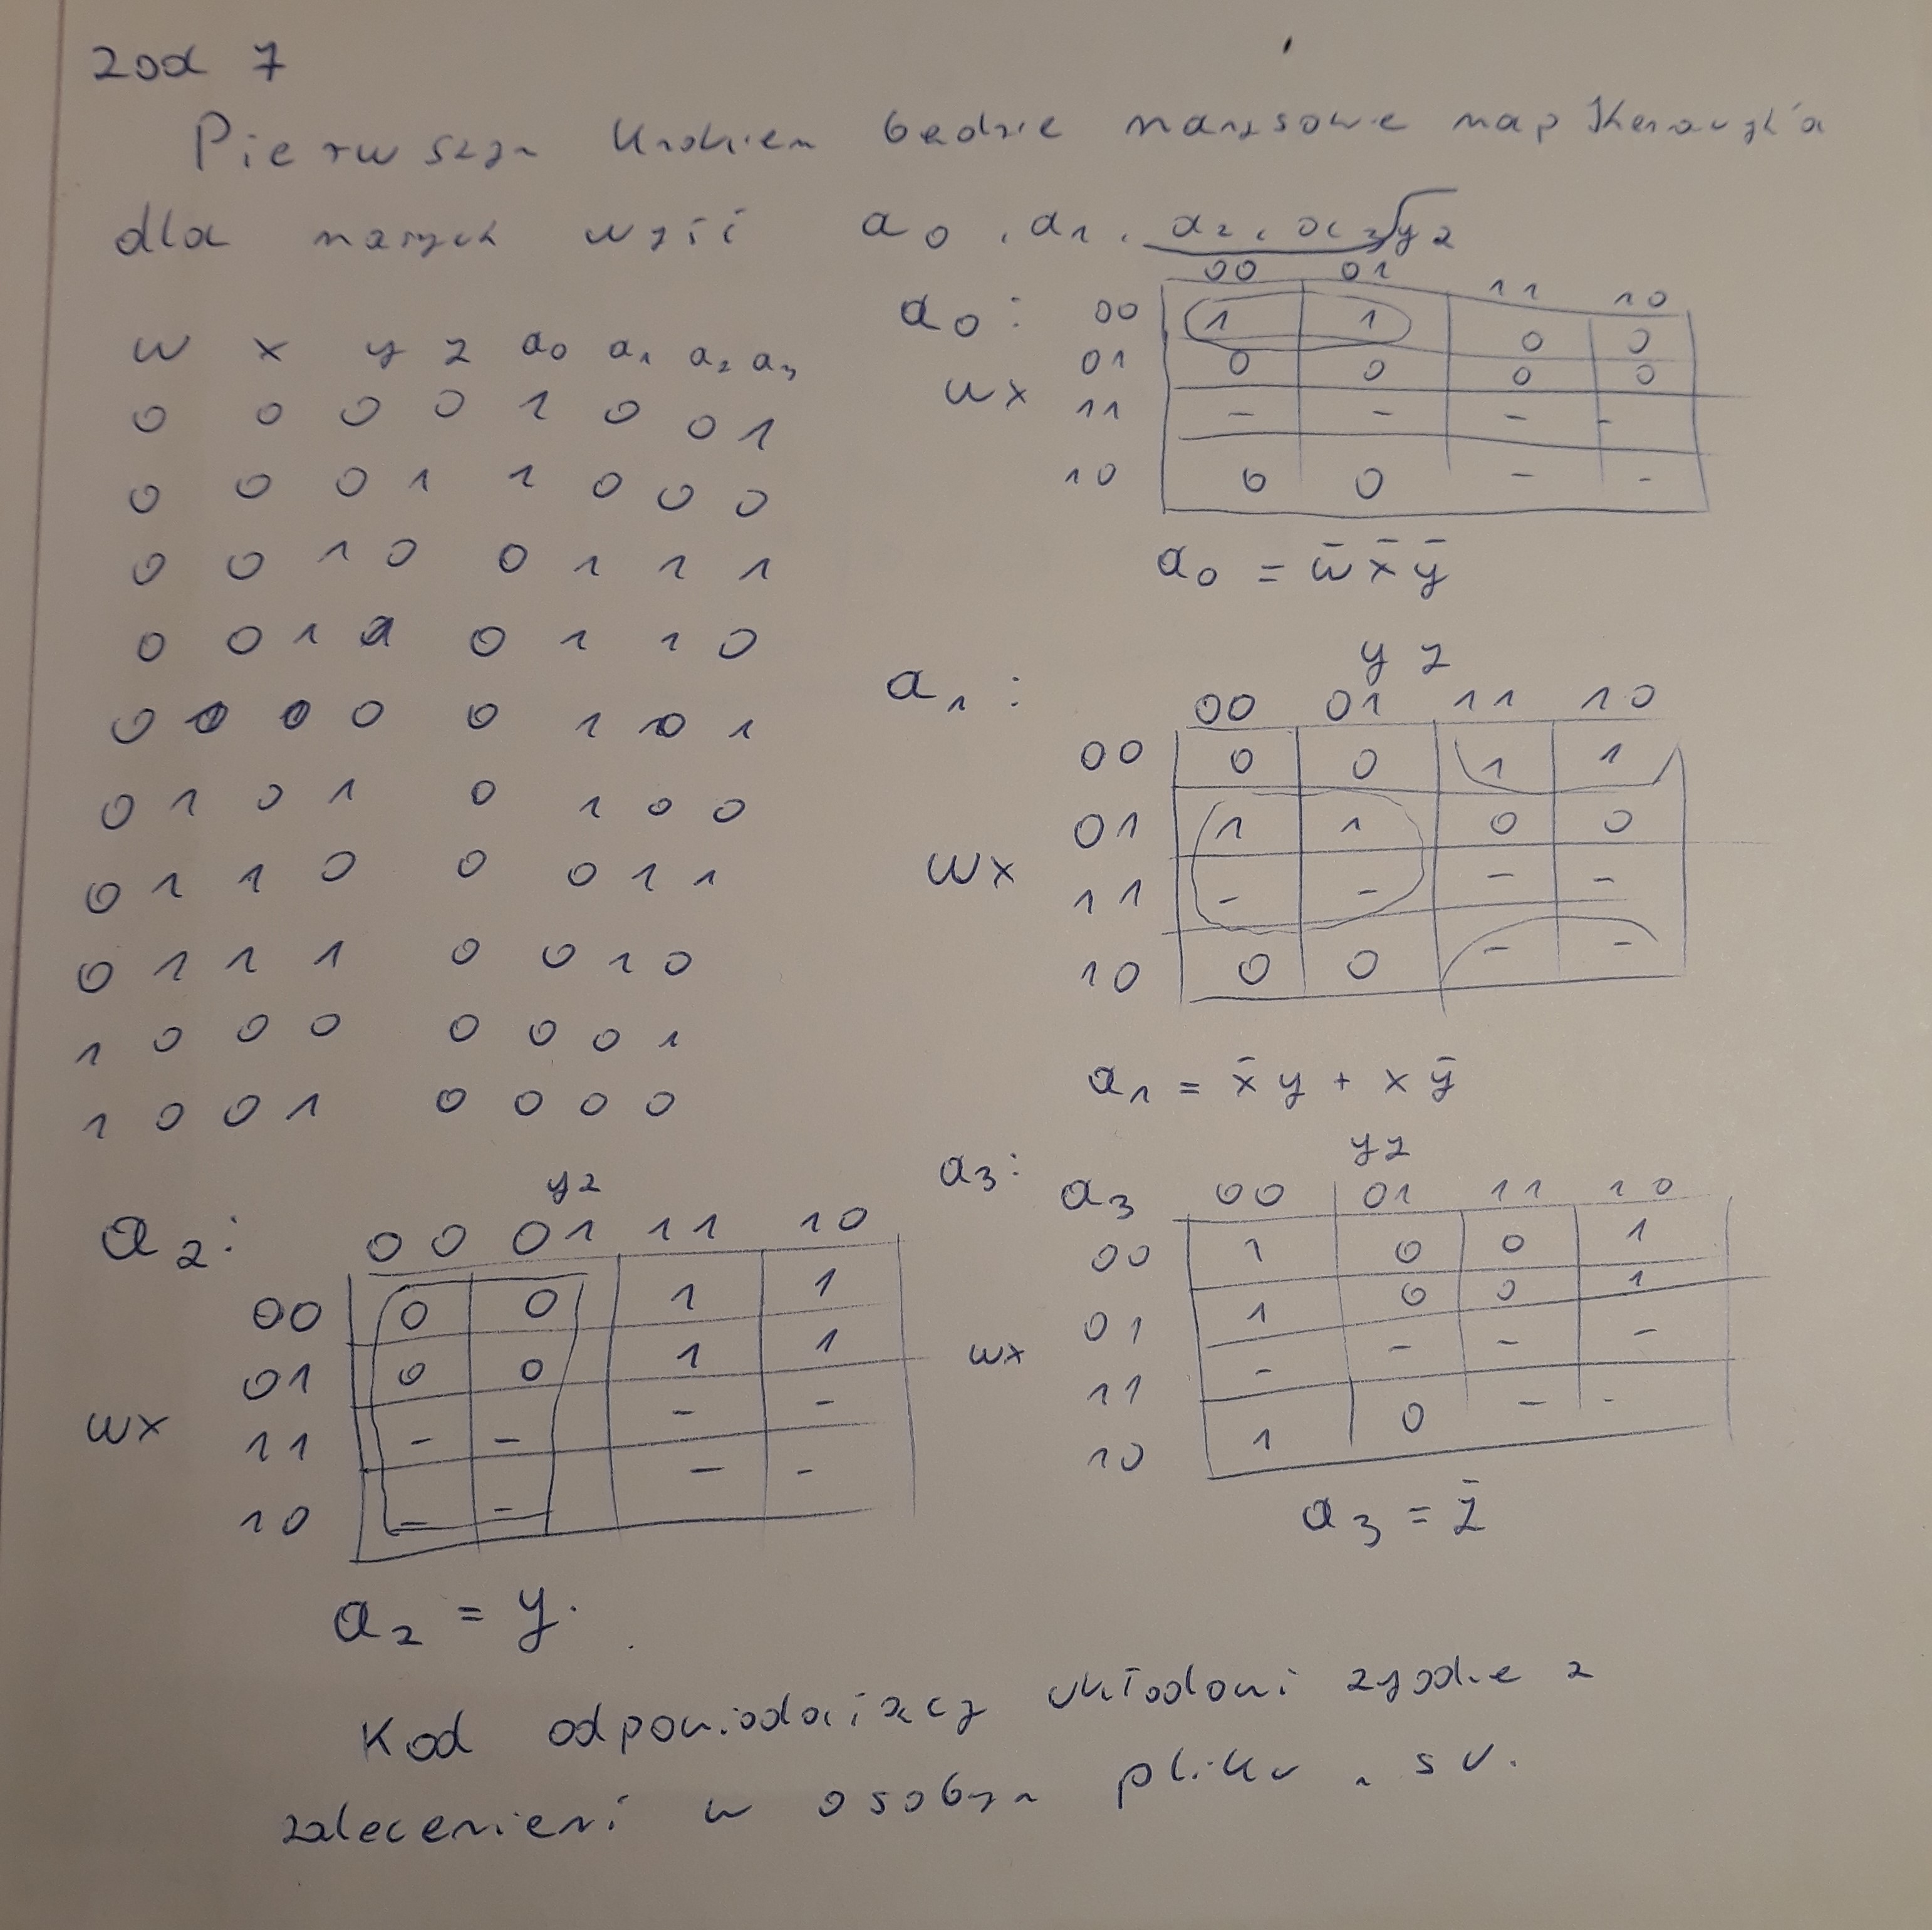 zad 7
Pierwszym krokiem będzie narysowanie map Karnaugh'a
dla naszych wyjść a0, a1, a2, a3
w x y z a0 a1 a2 a3
0 0 0 0 1 0 0 1
0 0 0 1 1 0 0 0
0 0 1 0 0 1 1 1
0 0 1 1 0 1 1 0
0 0 0 0 1 0 1
0 1 0 1 0 1 0 0
0 1 1 0 0 0 1 1
0 1 1 1 0 0 1 0
1 0 0 0 0 0 0 1
1 0 0 1 0 0 0 0
a0:
yz
00 01 11 10
wx
00 1 1 0 0
01 0 0 0 0
11 - - - -
10 0 0 - -
a0 = w̄ x̄ ȳ
a1:
yz
00 01 11 10
wx
00 0 0 1 1
01 1 1 0 0
11 - - - -
10 0 0 - -
a1 = x̄ y + x ȳ
a2:
yz
00 01 11 10
wx
00 0 0 1 1
01 0 0 1 1
11 - - - -
10 - - - -
a2 = y.
a3:
a3
yz
00 01 11 10
wx
00 1 0 0 1
01 1 0 0 1
11 - - - -
10 1 0 - -
a3 = z̄
Kod odpowiadający układowi zgodnie z
zaleceniami w osobym pliku .sv.